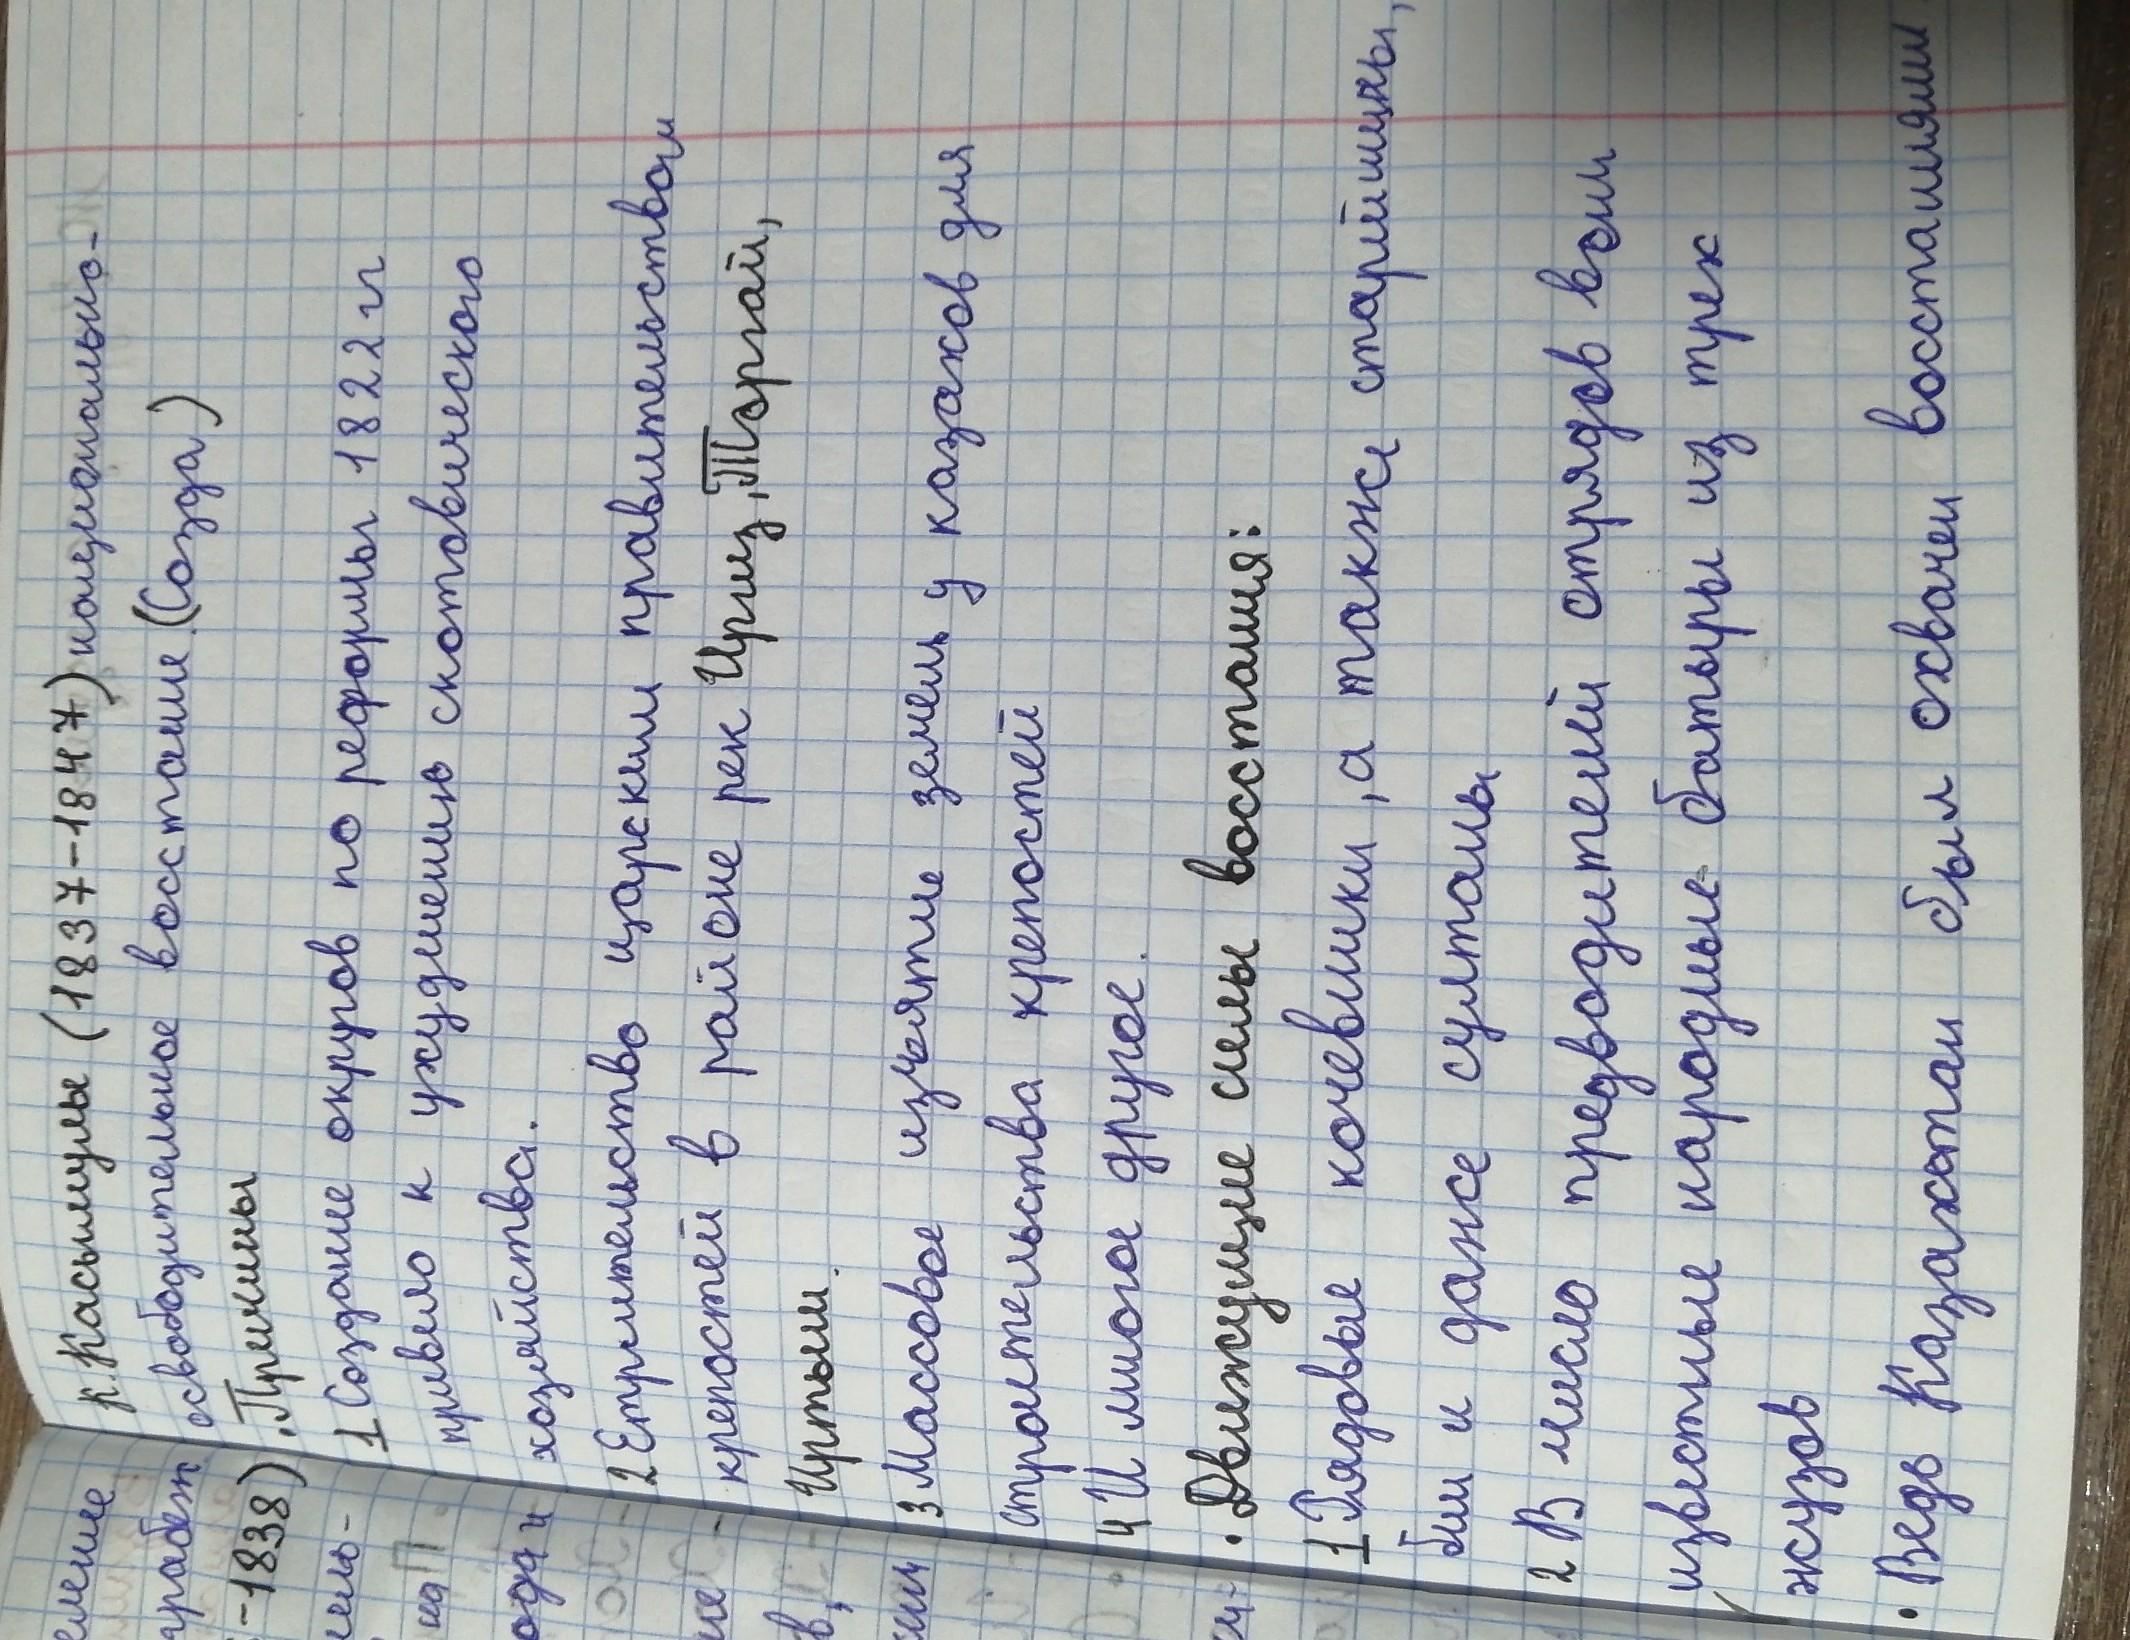 К. Касымулы (1837-1847) национально-
освободительное восстание. (Созда)
. Причины
1 Создание округов по реформы 1822 гг
привело к ухудшению скотовического
хозяйства.
2 Строительство царским правительством
крепостей в районе рек Иргиз, Торгай,
Иртыш.
3 Массовое изъятие земель у казахов для
строительства крепостей
4 И многое другое.
• Движущие силы восстания:
1 Рядовые кочевники, а также старшины,
бии и даже султаны
2 В число предводителей отрядов вошли
известные народные батыры из трех
жузов
• Ведь Казахстан был охвачен восстаниями
еление
грабеж
-1838)
на П
ода и
ие
в,